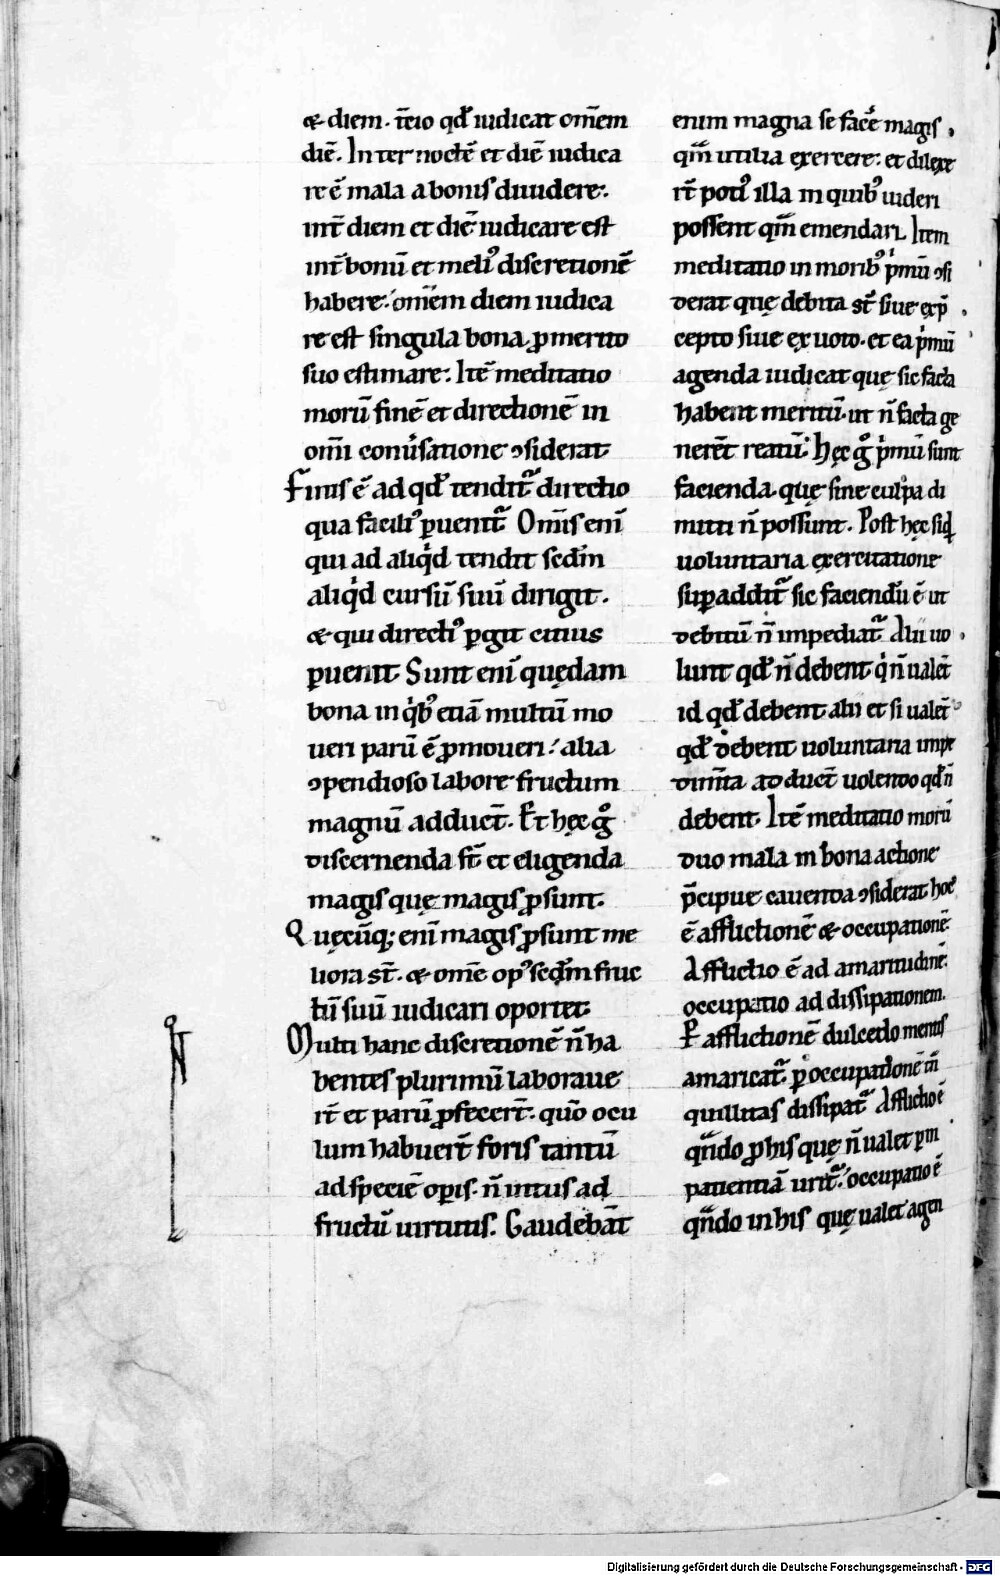 & diem. t̄cio qđ iudicat om̄em
diē. Inter noctē et diē iudica
re ē mala a bonis diuidere.
int̄ diem et diē iudicare est
int̄ bonū et meliꝰ discretionē
habere. om̄em diem iudica
re est singula bona ꝓ merito
suo estimare. Itē meditatio
morū finē et directionē in
om̄i conūsatione ꝯsiderat.
Finis ē ad qđ tendit᷑ directio
qua faciliꝰ ꝑuenit᷑. Om̄is enī
qui ad aliqͥd tendit secd̄m
aliqͥd cursū suū dirigit.
& qui directiꝰ ꝑgit citius
ꝑuenit. Sunt enī quędam
bona in qͥbꝰ etiā multum mo
ueri parū ē ꝓmoueri. alia
ꝯpendioso labore fructum
magnū adduct̄. Et hęc gͦ
discernenda st̄ et eligenda
magis quę magis ꝓsunt.
Quęcūq; enī magis ꝓsunt me
liora st̄. & om̄e opꝰ secd̄m fruc
tū suū iudicari oportet.
Multi hanc discretionē n̄ ha
bentes plurimū laboraue
rt̄ et parū ꝓfecert̄. quō ocu
lum habuert̄ foris tantū
ad speciē oꝑis. n̄ intus ad
fructū uirtutis. Gaudebāt
enim magna se facē magis
qm̄ utilia exercere. et dilexe
rt̄ potiꝰ illa in quibꝰ uideri
possent qm̄ emendari. Item
meditatio in moribꝰ pͥmū ꝯsi
derat quę debita st̄ siue ex p̄
cepto siue ex uoto. et ea pͥmū
agenda iudicat quę sic facta
habent meritū. ut n̄ facta ge
nerēt reatū. Hęc gͦ pͥmū sunt
facienda. quę sine culpa di
mitti n̄ possunt. Post hęc siqͥ
uoluntaria exercitatione
suꝑaddit᷑ sic faciendū ē ut
debitū n̄ impediat᷑. Alii uo
lunt qđ n̄ debent qͥ n̄ ualēt
id qđ debent. alii et si ualēt
qđ debent uoluntaria impe
dim̄ta adduct̄ uolendo qđ n̄
debent. Itē meditatio morū
duo mala in bona actione
p̄cipue cauenda ꝯsiderat hoc
ē afflictionē & occupationē.
Afflictio ē ad amaritudinē.
occupatio ad dissipationem.
Per afflictionē dulcedo mentis
amaricat᷑. ꝑ occupationē tn̄
quillitas dissipat᷑. Afflictio ē
qn̄do ꝓ his quę n̄ ualet ꝑ in
patientiā urit᷑. occupatio ē
qn̄do in his quę ualet agen
Digitalisierung gefördert durch die Deutsche Forschungsgemeinschaft - DFG